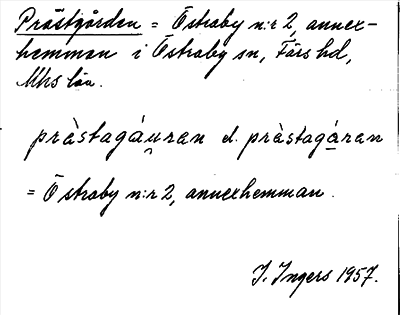 Prästgården = Östraby n:r 2, annex-
hemman i Östraby sn, Färs hd,
Mhs län.
pràstagáu̯ran el. pràstagáran
= Östraby n:r 2, annexhemman.
I. Ingers 1957.